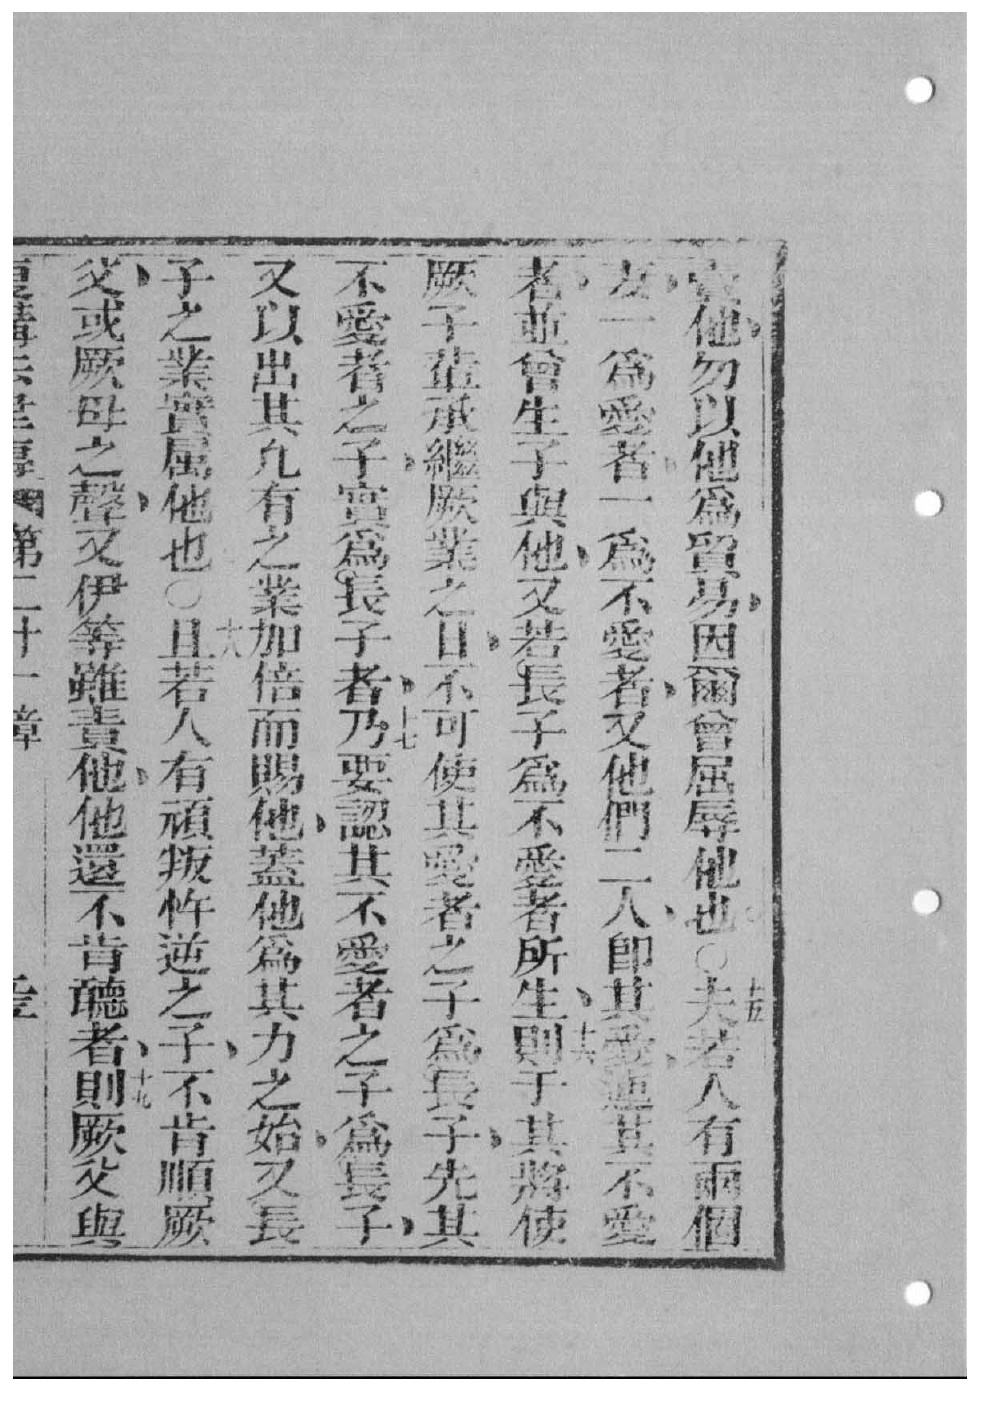 賣他、勿以他爲貿易、因爾曾屈辱他也。○十五夫若人有兩個
妻、一爲愛者、一爲不愛者、又他們二人、卽其愛、連其不愛
者、並曾生子與他、又若長子爲不愛者所生、十六則于其將使
厥子輩承繼厥業之日、不可使其愛者之子爲長子、先其
不愛者之子、實爲長子者、十七乃要認其不愛者之子爲長子、
又以出其凢有之業加倍而賜他、蓋他爲其力之始、又長
子之業實属他也○十八且若人有頑叛忤逆之子、不肯順厥
父、或厥母之聲、又伊等雖責他、他還不肯聽者、十九則厥父與
復講法世傳 第二十一章